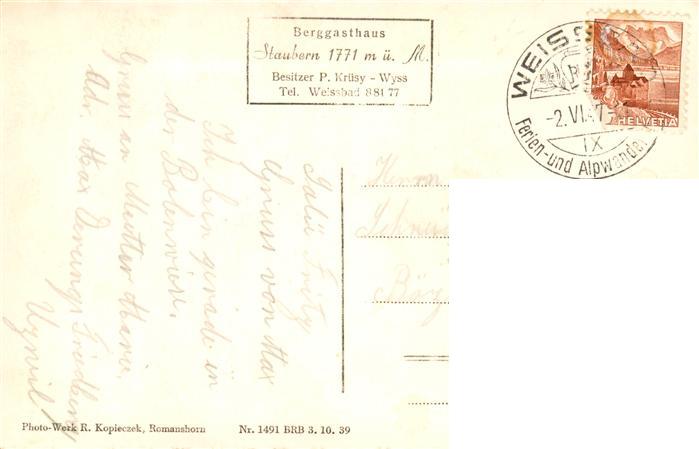 Berggasthaus
Staubern 1771 m ü. M.
Besitzer P. Krüsy - Wyss
Tel. Weissbad 8 81 77
WEISS
-2.VI.47-
IX
Ferien- und Alpwander
HELVETIA
Salü Fritz
Gruss von Max
Ich bin gerade in
der Bolenwiese.
Gruss an Mutter Marie.
Adr. Max
Uzwil
Herrn
Photo-Werk R. Kopieczek, Romanshorn
Nr. 1491 BRB 3. 10. 39